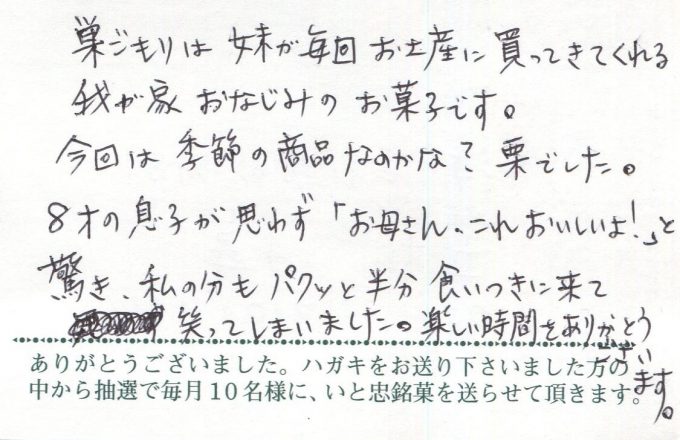 巣ごもりは 妹が毎回 お土産に 買ってきてくれる
我が家 おなじみの お菓子です。
今回は 季節の商品なのかな? 栗でした。
8才の息子が 思わず「お母さん、これ おいしいよ!」と
驚き、私の分も パクッと半分 食いつきに来て
笑ってしまいました。楽しい時間をありがとう
ございます。
ありがとうございました。ハガキをお送り下さいました方の
中から抽選で毎月10名様に、いと忠銘菓を送らせて頂きます。